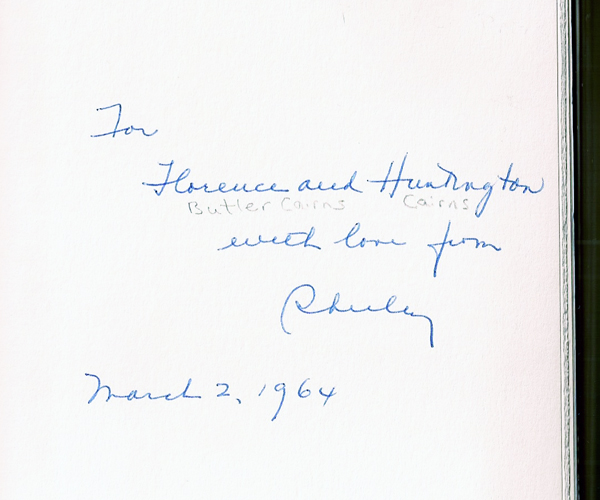 For
Florence and Huntington
Butler Cairns Cairns
with love from
March 2, 1964